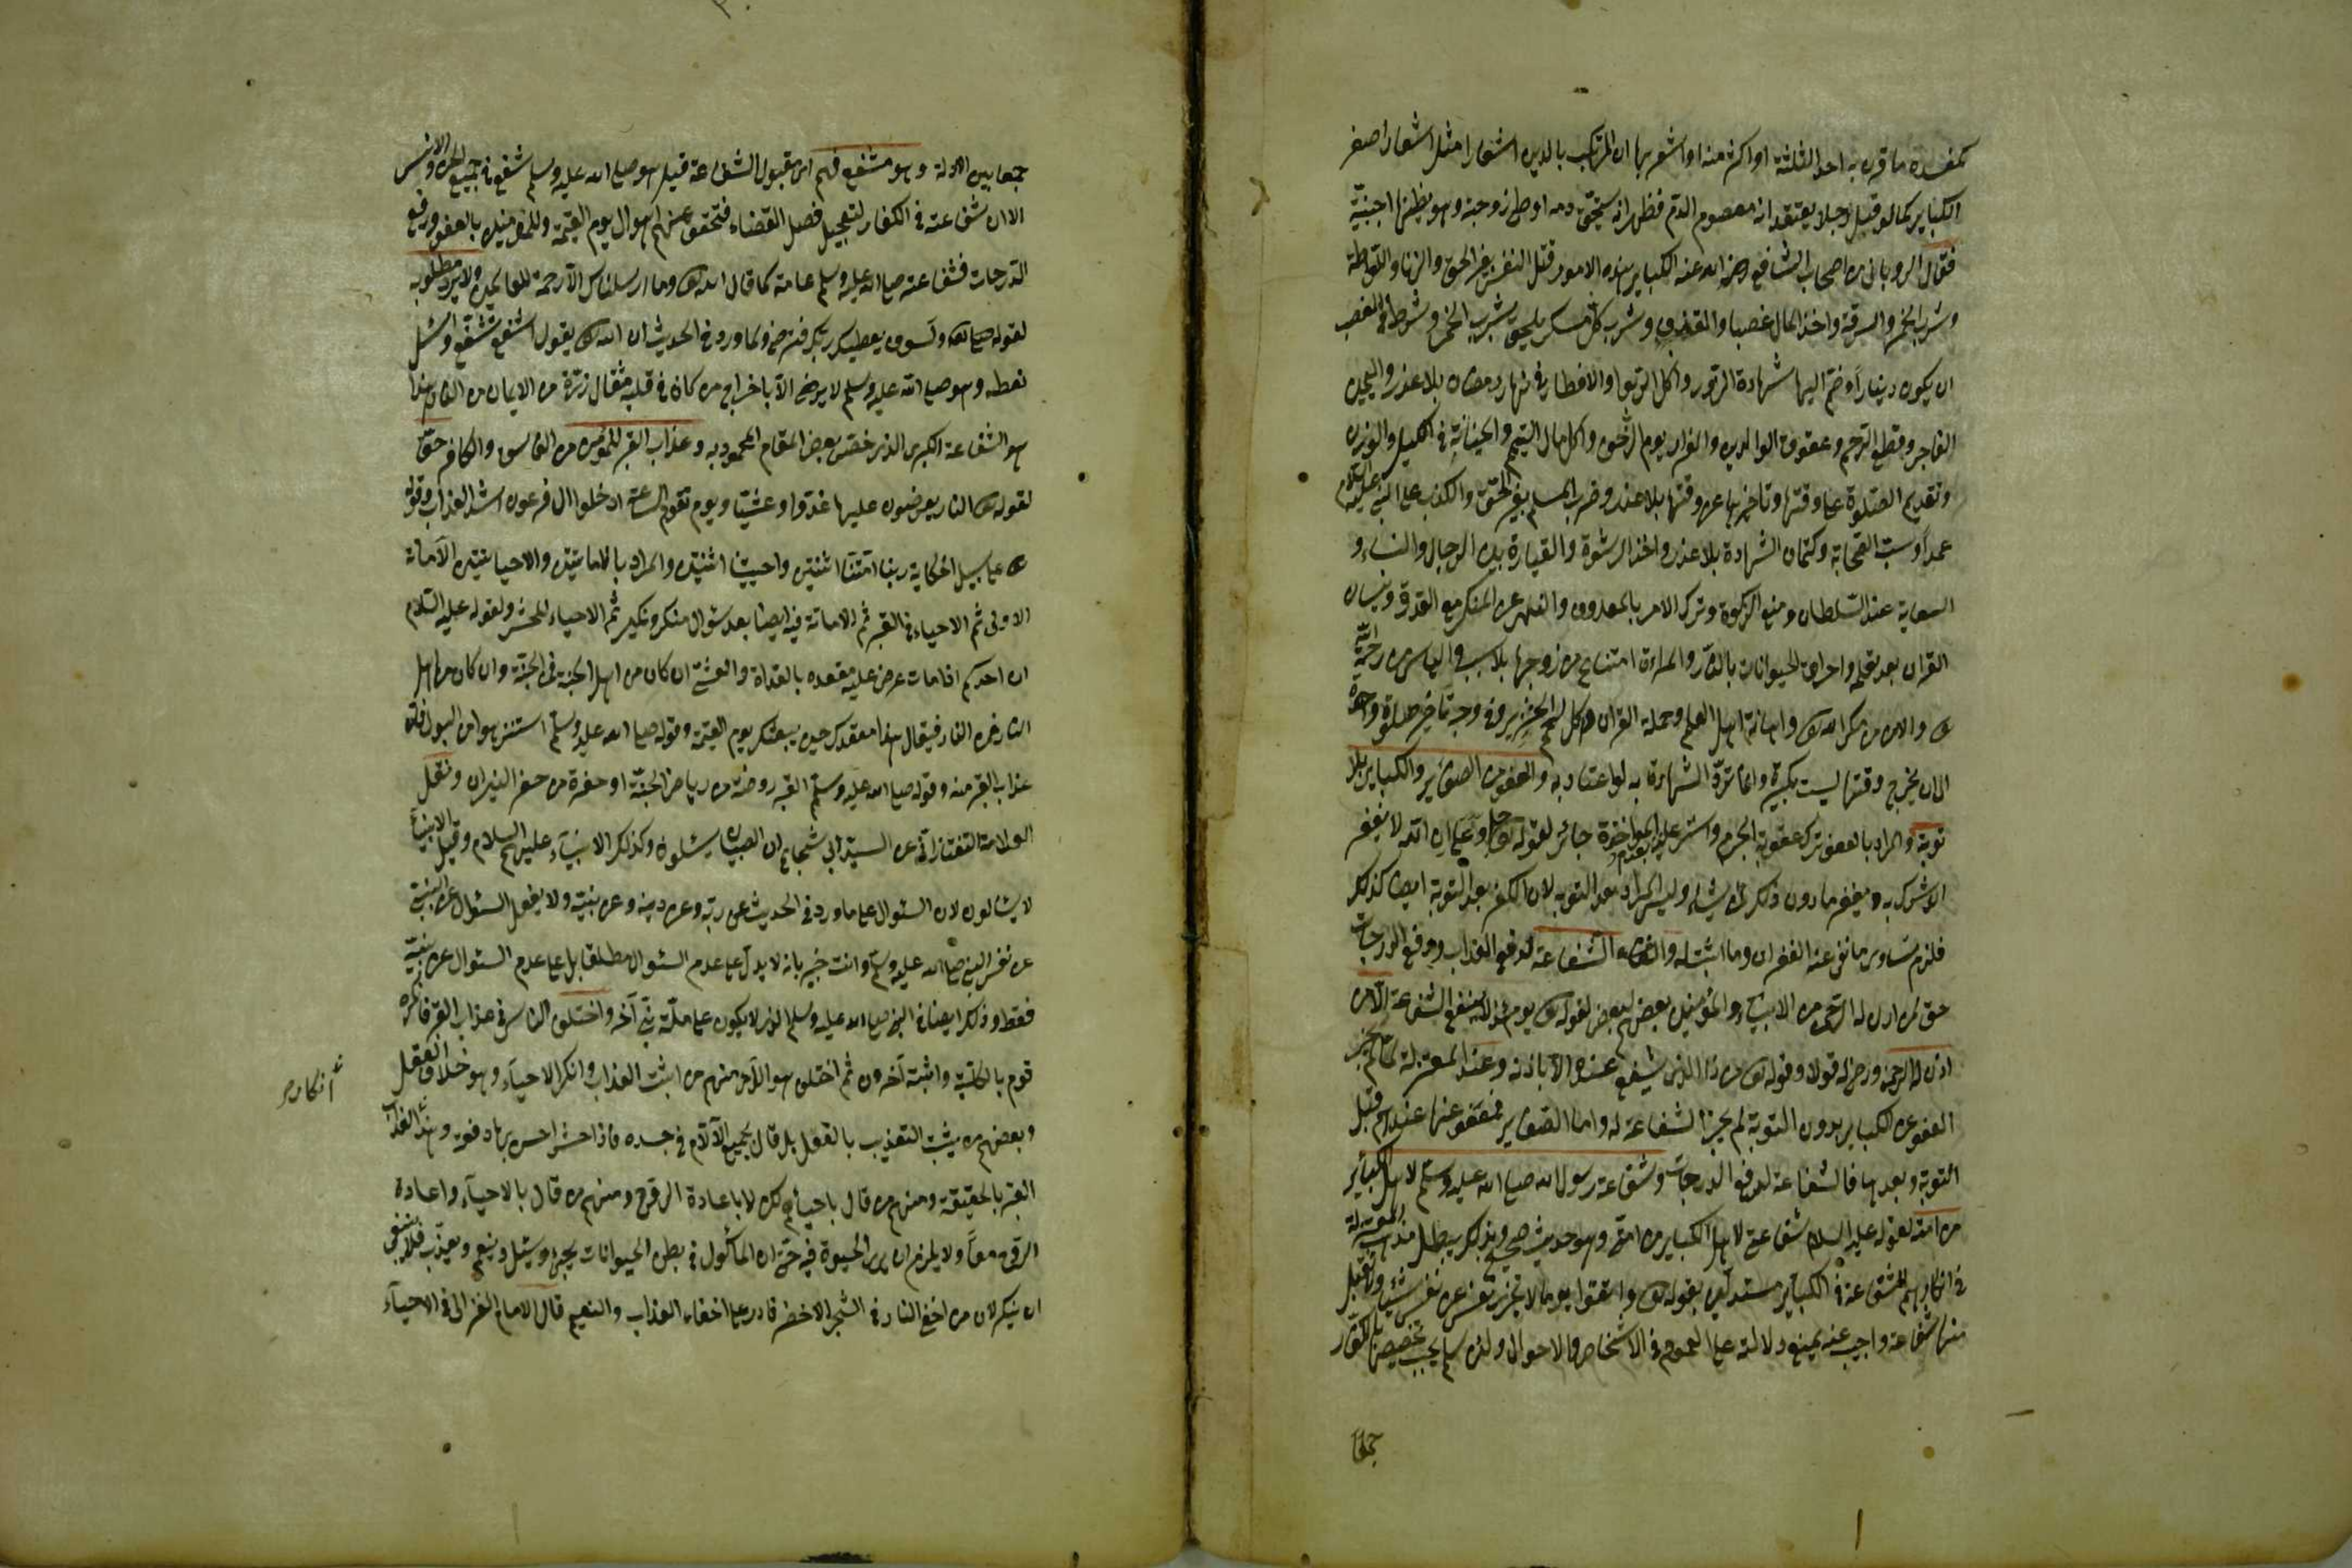 كمفسدة ما قرن به احد الثلثة او اكثر منه او اشعر بها ان المرتكب بالدين اشعارا مثل اشعار اصغر
الكباير كما لو قتل رجلا يعتقد انه معصوم الدم فظهر انه يستحق دمه او وطئ زوجته وهو يظنها اجنبية
فقال الروياني من اصحاب الشافعي رضى الله عنه الكباير هذه الامور قتل النفس بغير الحق والزنا واللواطة
وشرب الخمر والسرقة واخذ المال غصبا والقذف وشرب كل مسكر يلحق بشرب الخمر وشرط في الغصب
ان يكون دينارا وضم اليها شهادة الزور واكل الربوا والافطار في نهار رمضان بلا عذر واليمين
الفاجر وقطع الرحم وعقوق الوالدين والفرار يوم الزحف واكل مال اليتيم والخيانة في الكيل والوزن
وتقديم الصلوة على وقتها وتاخيرها عن وقتها بلا عذر وضرب المسلم بغير الحق والكذب على النبي عليه السلام
عمدا وسب الصحابة وكتمان الشهادة بلا عذر واخذ الرشوة والقيادة بين الرجال والنساء و
السعاية عند السلطان ومنع الزكوة وترك الامر بالمعروف والنهى عن المنكر مع القدرة ونسيان
القرآن بعد تعلمه واحراق الحيوانات بالنار والمراة امتناع من زوجها بلا سبب والياس من رحمة الله
تع والامن من مكر الله تع واهانة اهل العلم وحملة القرآن واكل لحم الخنزير وفي وجه تأخير صلوة واحدة
الى ان يخرج وقتها ليست بكبيرة وانما ترد الشهادة به لو اعتاد به والعفو عن الصغاير والكباير بلا
توبة والمراد بالعفو ترك عقوبة المجرم والستر عليه بعدم المؤاخذة جائز لقوله تع ان الله لا يغفر
ان يشرك به ويغفر ما دون ذلك لمن يشاء وليس المراد بعد التوبة لان الكفر بعد التوبة ايضا كذلك
فلزم تساوى ما نفى عنه الغفران وما اثبت له والشفاعة لدفع العذاب ورفع الدرجات
حق لمن اذن له الرحمن من الانبياء والمؤمنين بعضهم لبعض لقوله تع يومئذ لا تنفع الشفاعة الا من
اذن له الرحمن ورضى له قولا وقوله تع من ذا الذى يشفع عنده الا باذنه وعند المعتزلة لما لم يجز
العفو عن الكباير بدون التوبة لم يجز الشفاعة له واما الصغاير فمعفو عنها عندهم قبل
التوبة وبعدها فالشفاعة لرفع الدرجات وشفاعة رسول الله صلى الله عليه وسلم لاهل الكبائر
من امته لقوله عليه السلام شفاعتي لاهل الكباير من امتي وهو حديث صحيح وبذلك يبطل مذهب المعتزلة
في انكارهم الشفاعة في الكبائر مستدلين بقوله تع واتقوا يوما لا تجزى نفس عن نفس شيئا ولا يقبل
منها شفاعة واجيب عنه بمنع دلالته على العموم في الاشخاص والاحوال ولئن سلم يجب تخصيصها بالكفار
جمعا
جمعا بين الادلة وهو مشفع فيهم اى مقبول الشفاعة قيل هو صلى الله عليه وسلم شفيع في جميع الجن والانس
الا ان شفاعته في الكفار لتعجيل فصل القضاء فتخفف عنهم اهوال يوم القيمة وللمؤمنين بالعفو ورفع
الدرجات فشفاعته صلى الله عليه وسلم عامة كما قال الله تع وما ارسلناك الا رحمة للعالمين ولا يرد مطلوبه
لقوله تع ولسوف يعطيك ربك فترضى ولما ورد في الحديث ان الله تع يقول اشفع تشفع وسل
تعطه وهو صلى الله عليه وسلم لا يرضى الا باخراج من كان في قلبه مثقال ذرة من الايمان من النار هذا
هو الشفاعة الكبرى الذى خصص بعض المقام المحمود به وعذاب القبر للمؤمن من الفاسق والكافر حق
لقوله تع النار يعرضون عليها غدوا وعشيا ويوم تقوم الساعة ادخلوا ال فرعون اشد العذاب وقوله
تع على سبيل الحكاية ربنا امتنا اثنتين واحييتنا اثنتين والمراد بالاماتتين والاحيائين الاماتة
الاولى ثم الاحياء في القبر ثم الاماتة فيه ايضا بعد سؤال منكر ونكير ثم الاحياء للحشر ولقوله عليه السلام
ان احدكم اذا مات عرض عليه مقعده بالغداة والعشى ان كان من اهل الجنة فمن الجنة وان كان من اهل
النار فمن النار فيقال هذا مقعدك حين يبعثك يوم القيمة وقوله صلى الله عليه وسلم استنزهوا من البول فان
عذاب القبر منه وقوله صلى الله عليه وسلم القبر روضة من رياض الجنة او حفرة من حفر النيران ونقل
العلامة التفتازاني عن السيد ابي شجاع ان الصبيان يسئلون وكذلك الانبياء عليهم السلام وقيل الانبياء
لا يسألون لان السؤال على ما ورد في الحديث عن ربه وعن دينه وعن نبيه ولا يعقل السؤال عن النبي
عن نفس النبي صلى الله عليه وسلم وانت خبير بانه لا يدل على عدم السؤال مطلقا بل على عدم السؤال عن نبيه
فقط وذلك ايضا في النبي صلى الله عليه وسلم الذى لا يكون على ملة نبي آخر واختلف الناس في عذاب القبر فانكره
قوم بالكلية واثبته آخرون ثم اختلف هؤلاء فمنهم من اثبت العذاب وانكر الاحياء وهو خلاف العقل
وبعضهم من يثبت التعذيب بالفعل بل قال بجمع الآلام في جسده فاذا حشر احس بها دفعة وهذا العذاب
القبر بالحقيقة ومنهم من قال باحيائه لكن لا باعادة الروح ومنهم من قال بالاحياء واعادة
الروح معا ولا يلزم ان يرى الحيوة فيه حتى ان المأكول في بطن الحيوانات يحيى ويسئل وينعم ويعذب فلا ينبغي
ان ينكر لان من اخفى النار في الشجر الاخضر قادر على اخفاء العذاب والنعيم قال الامام الغزالى في الاحياء
انكاره